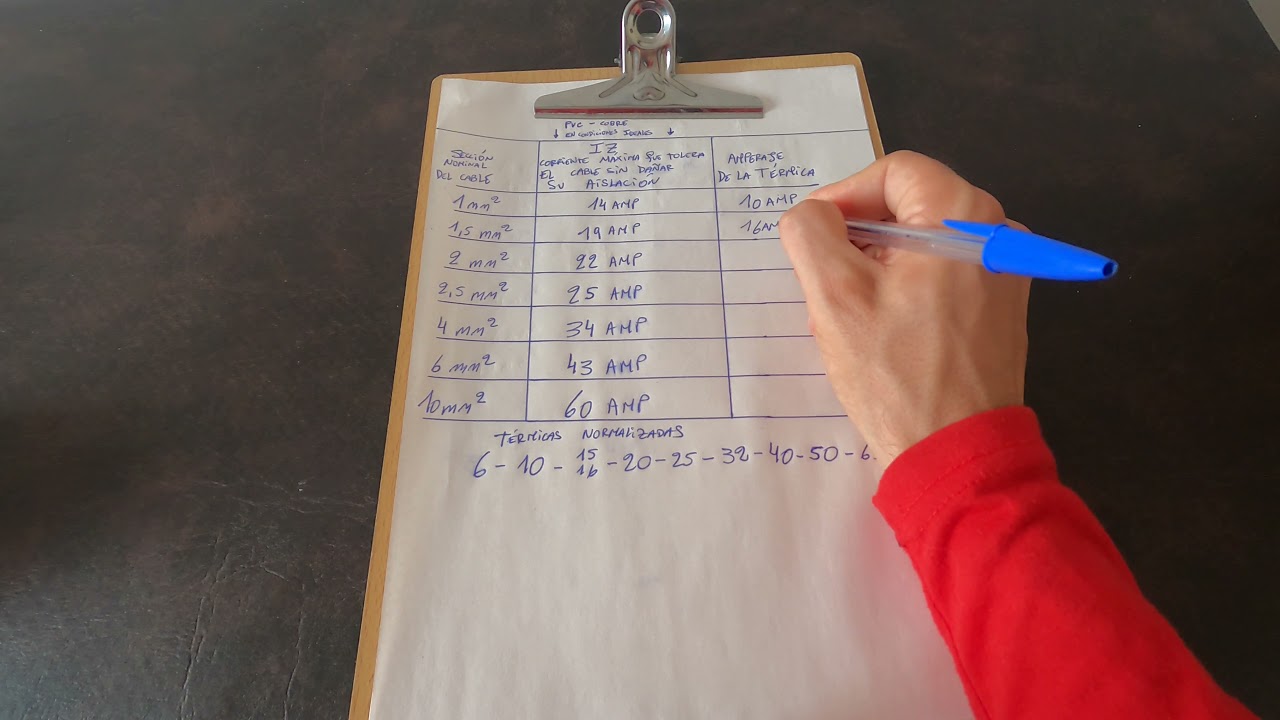 PVC - COBRE
↓ EN CONDICIONES IDEALES ↓
SECCIÓN
NOMINAL
DEL CABLE
IZ
CORRIENTE MÁXIMA QUE TOLERA
EL CABLE SIN DAÑAR
SU AISLACIÓN
AMPERAJE
DE LA TÉRMICA
1 mm² 14 AMP 10 AMP
1,5 mm² 19 AMP 16 AM
2 mm² 22 AMP
2,5 mm² 25 AMP
4 mm² 34 AMP
6 mm² 43 AMP
10 mm² 60 AMP
TÉRMICAS NORMALIZADAS
6 - 10 - 15 16 - 20 - 25 - 32 - 40 - 50 - 6